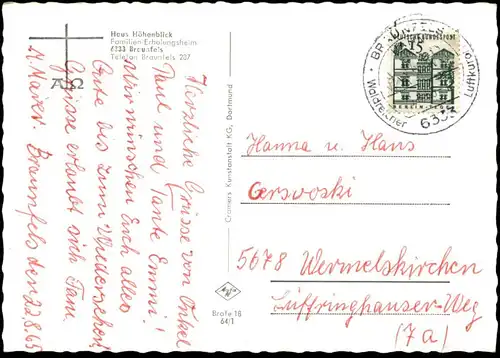 Haus Höhenblick
Familien-Erholungsheim
6333 Braunfels
Telefon Braunfels 207
Α Ω
Herzliche Grüsse von Onkel
Paul und Tante Emmi!
Wir wünschen Euch alles
Gute bis zum Wiedersehen
Grüsse erlaubt sich Fam.
Maier. Braunfels den 22.8.65
Cramers Kunstanstalt KG, Dortmund
Brafe 18
64/1
DEUTSCHE BUNDESPOST
15
BERLIN-TEGEL
BRAUNFELS
6333
Waldreicher Luftkurort
Hanna u. Hans
Cersvoski
5678 Wermelskirchen
Lüffringhauser-Weg
(7a)